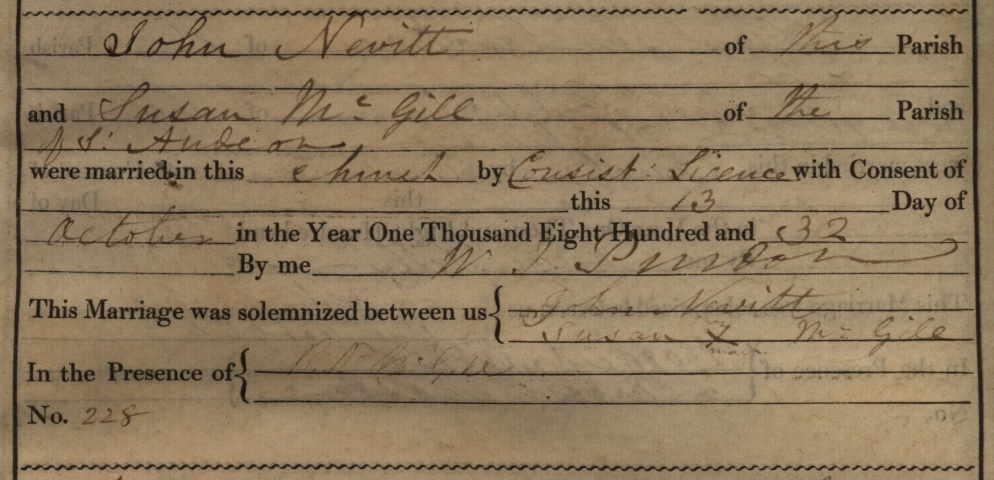 John Nevitt of this Parish
and Susan Mc Gill of the Parish
of St. Audeon
were married in this Church by Consist: Licence with Consent of
this 13 Day of
October in the Year One Thousand Eight Hundred and 32
By me W. J. Purdon
This Marriage was solemnized between us { John Nevitt
Susan X Mc Gill
mark
In the Presence of {
No. 228